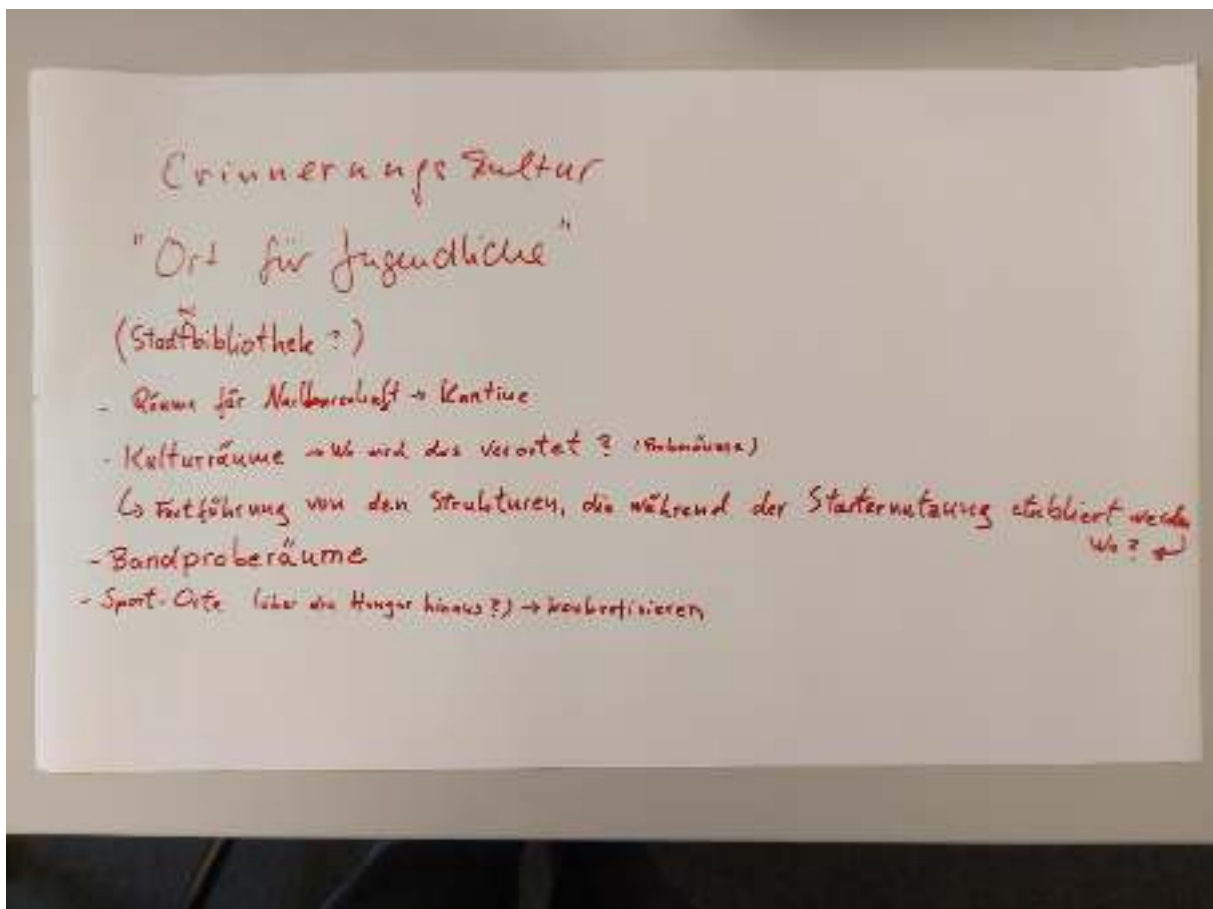 Erinnerungskultur
"Ort für Jugendliche"
(Stadtbibliothek ?)
- Räume für Nachbarschaft → Kantine
- Kulturräume → Wo wird das verortet ? (Proberäume)
↳ Fortführung von den Strukturen, die während der Starternutzung etabliert werden
Wo ? ↵
- Bandproberäume
- Sport-Orte (über die Hangar hinaus ?) → konkretisieren